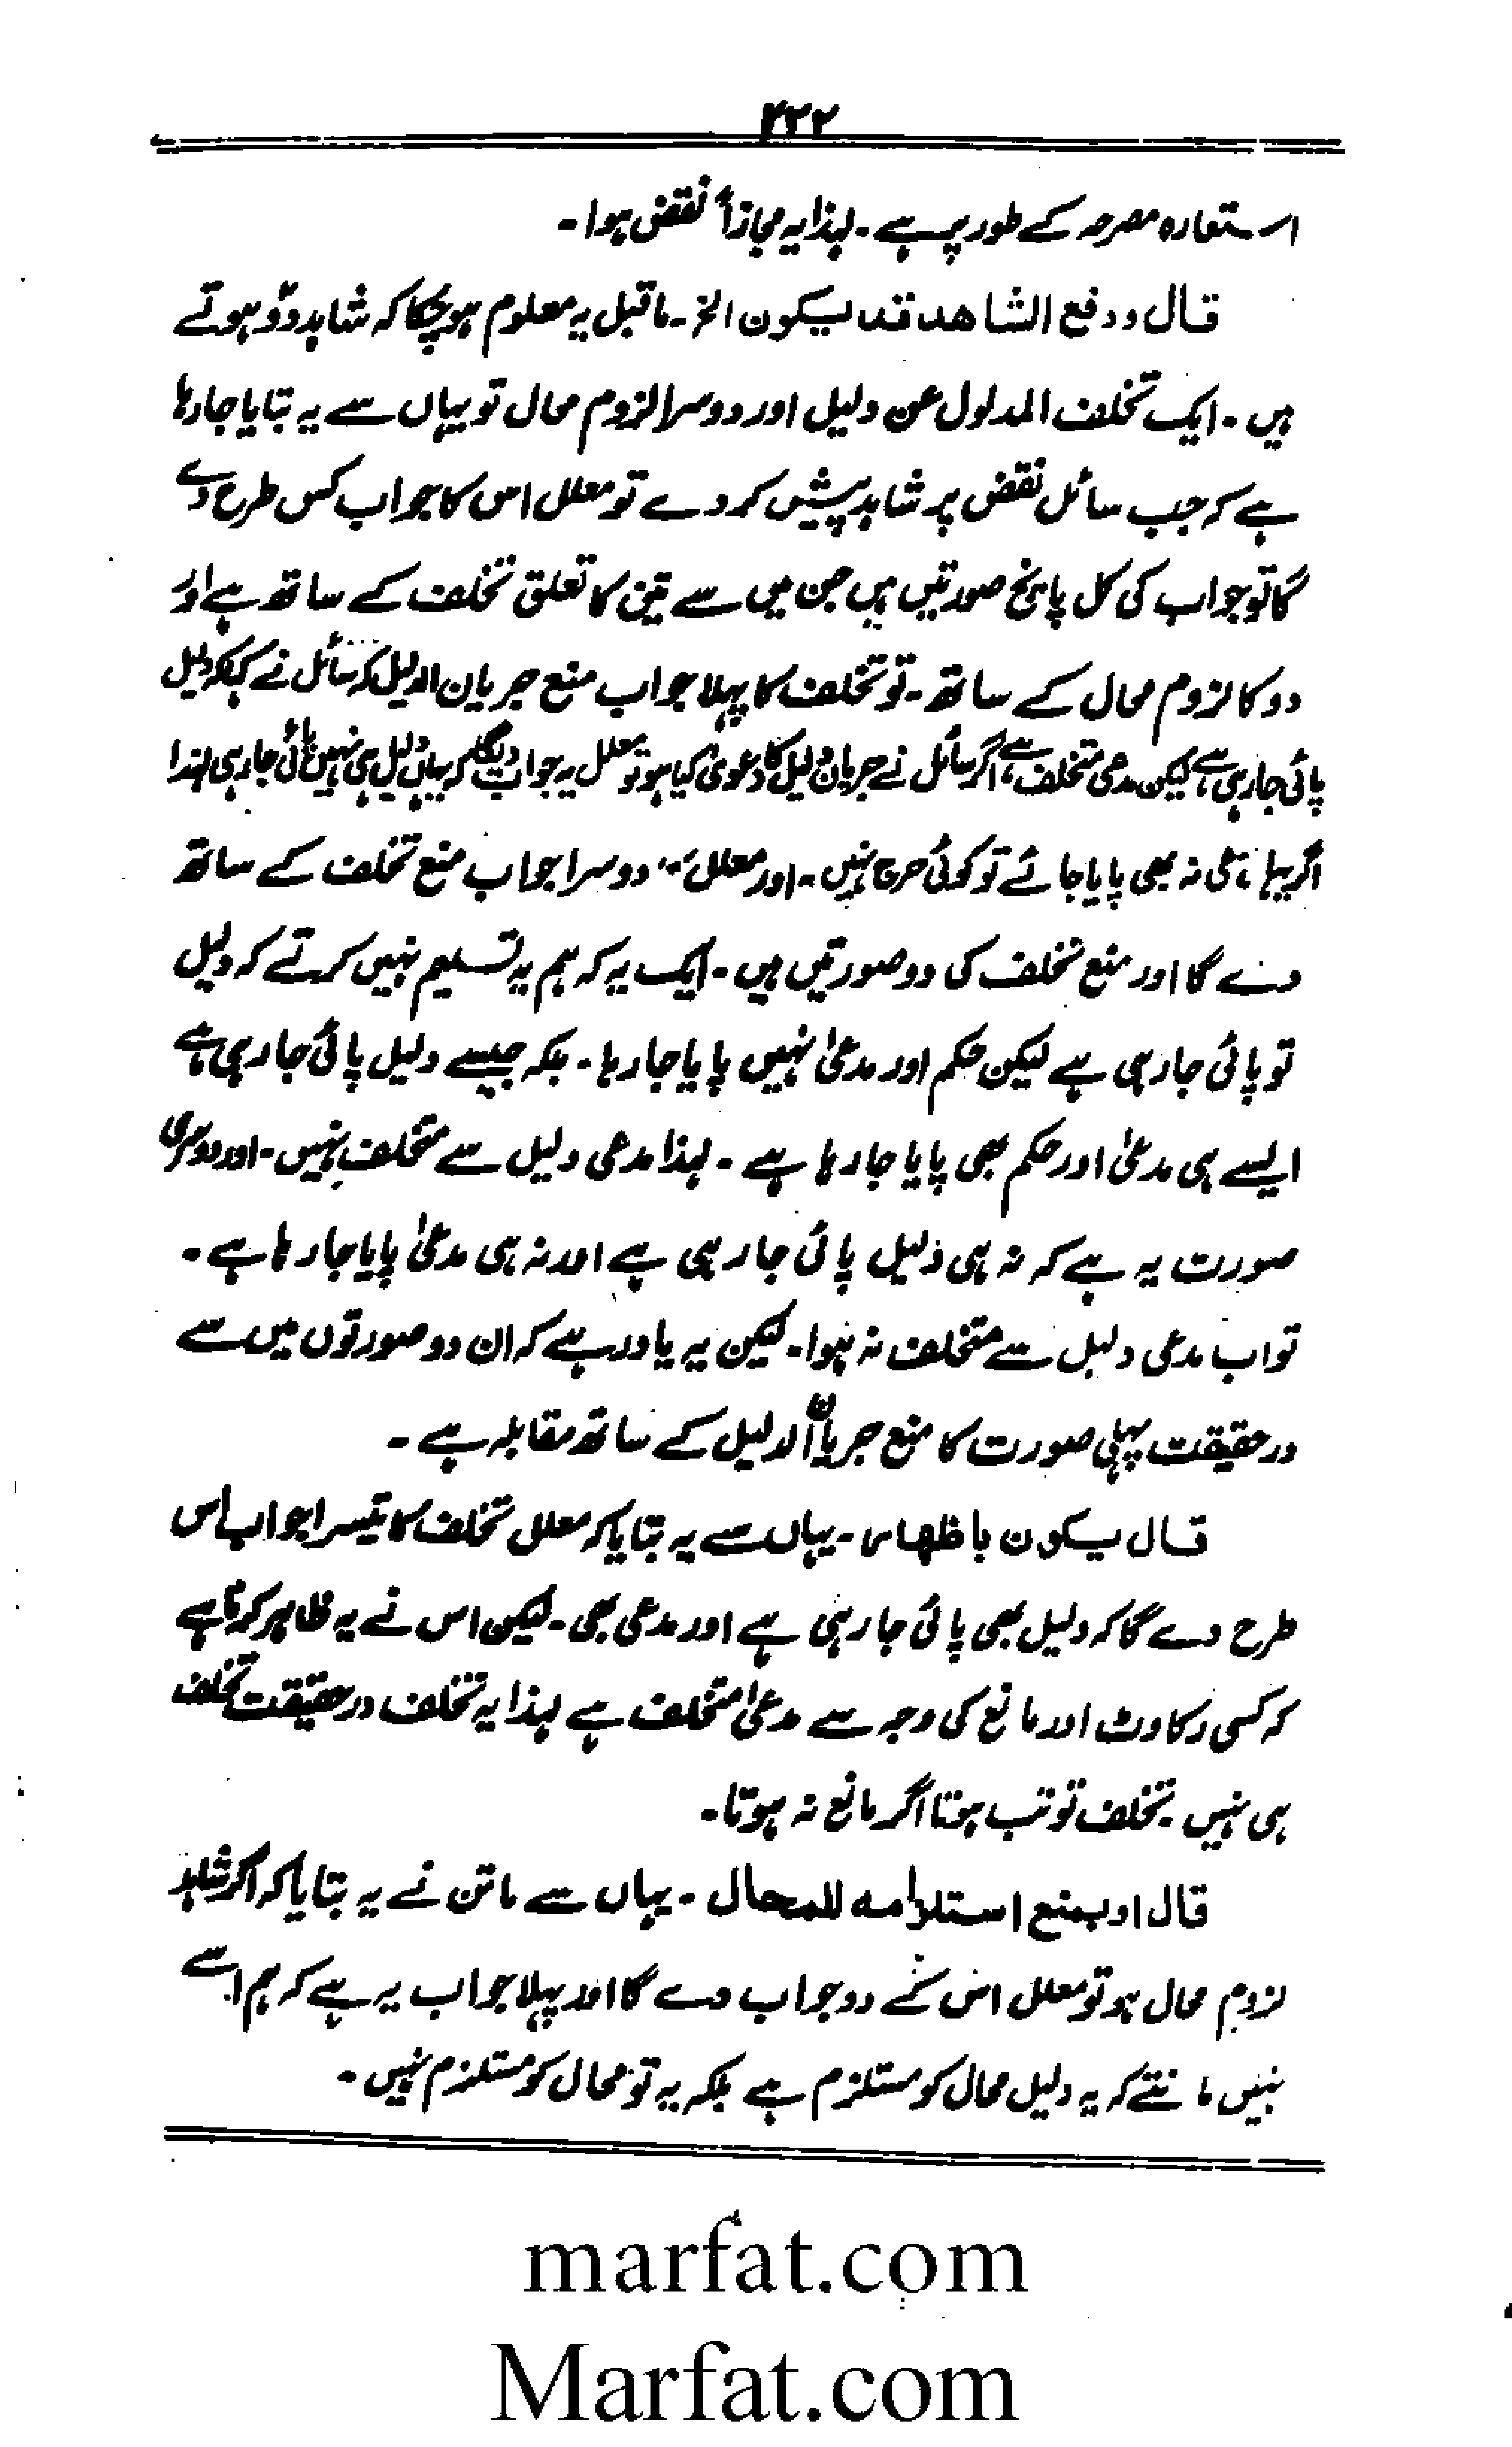 ۲۳۲
استعارہ مصرحہ کے طور پر ہے۔ لہذا یہ مجازاً نقض ہوا۔
قال ودفع الشاهد قد یکون الخ۔ ماقبل یہ معلوم ہوچکا کہ شاہد دو ہوتے
ہیں۔ ایک تخلف المدلول عن دلیل اور دوسرا لزوم محال تو یہاں سے یہ بتایا جارہا
ہے کہ جب سائل نقض پر شاہد پیش کردے تو معلل اس کا جواب کس طرح دے
گا تو جواب کی کل پانچ صورتیں ہیں جن میں سے تین کا تعلق تخلف کے ساتھ ہے اور
دو کا لزوم محال کے ساتھ۔ تو تخلف کا پہلا جواب منع جریان الدلیل کہ سائل نے کہا کہ دلیل
پائی جارہی ہے لیکن مدعی متخلف ہے اگر سائل نے جریان دلیل کا دعویٰ کیا ہو تو معلل یہ جواب دیگا کہ یہاں دلیل ہی نہیں پائی جارہی لہذا
اگر یہاں مدعی نہ بھی پایا جائے تو کوئی حرج نہیں۔ اور معلل دوسرا جواب منع تخلف کے ساتھ
دے گا اور منع تخلف کی دو صورتیں ہیں۔ ایک یہ کہ ہم یہ تسلیم نہیں کرتے کہ دلیل
تو پائی جارہی ہے لیکن حکم اور مدعیٰ نہیں پایا جارہا۔ بلکہ جیسے دلیل پائی جارہی ہے
ایسے ہی مدعیٰ اور حکم بھی پایا جارہا ہے۔ لہذا مدعی دلیل سے متخلف نہیں۔ اور دوسری
صورت یہ ہے کہ نہ ہی دلیل پائی جارہی ہے اور نہ ہی مدعیٰ پایا جارہا ہے۔
تو اب مدعی دلیل سے متخلف نہ ہوا۔ لیکن یہ یاد رہے کہ ان دو صورتوں میں سے
درحقیقت پہلی صورت کا منع جریان الدلیل کے ساتھ مقابلہ ہے۔
قال یکون باظهار۔ یہاں سے یہ بتایا کہ معلل تخلف کا تیسرا جواب اس
طرح دے گا کہ دلیل بھی پائی جارہی ہے اور مدعی بھی۔ لیکن اس نے یہ ظاہر کرنا ہے
کہ کسی رکاوٹ اور مانع کی وجہ سے مدعیٰ متخلف ہے لہذا یہ تخلف درحقیقت تخلف
ہی نہیں۔ تخلف تو تب ہوتا اگر مانع نہ ہوتا۔
قال او بمنع استلزامه للمحال۔ یہاں سے ماتن نے یہ بتایا کہ اگر شاہد
لزوم محال ہو تو معلل اس کے دو جواب دے گا اور پہلا جواب یہ ہے کہ ہم اسے
نہیں مانتے کہ یہ دلیل محال کو مستلزم ہے بلکہ یہ تو محال کو مستلزم نہیں۔
marfat.com
Marfat.com